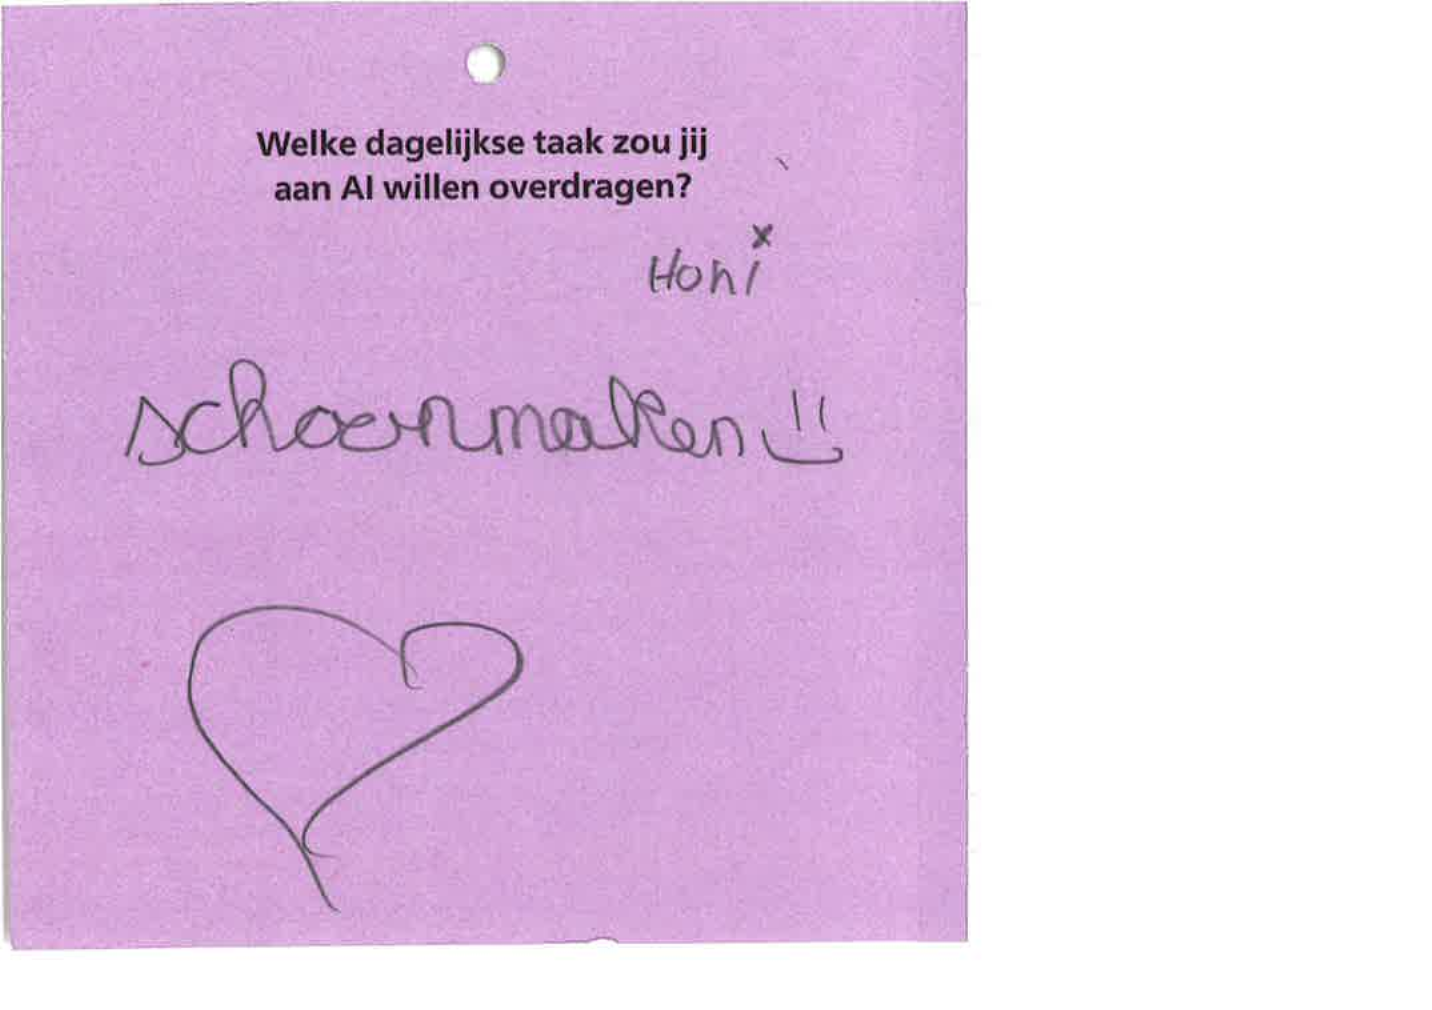 Welke dagelijkse taak zou jij
aan AI willen overdragen?
Honi
schoenmaken